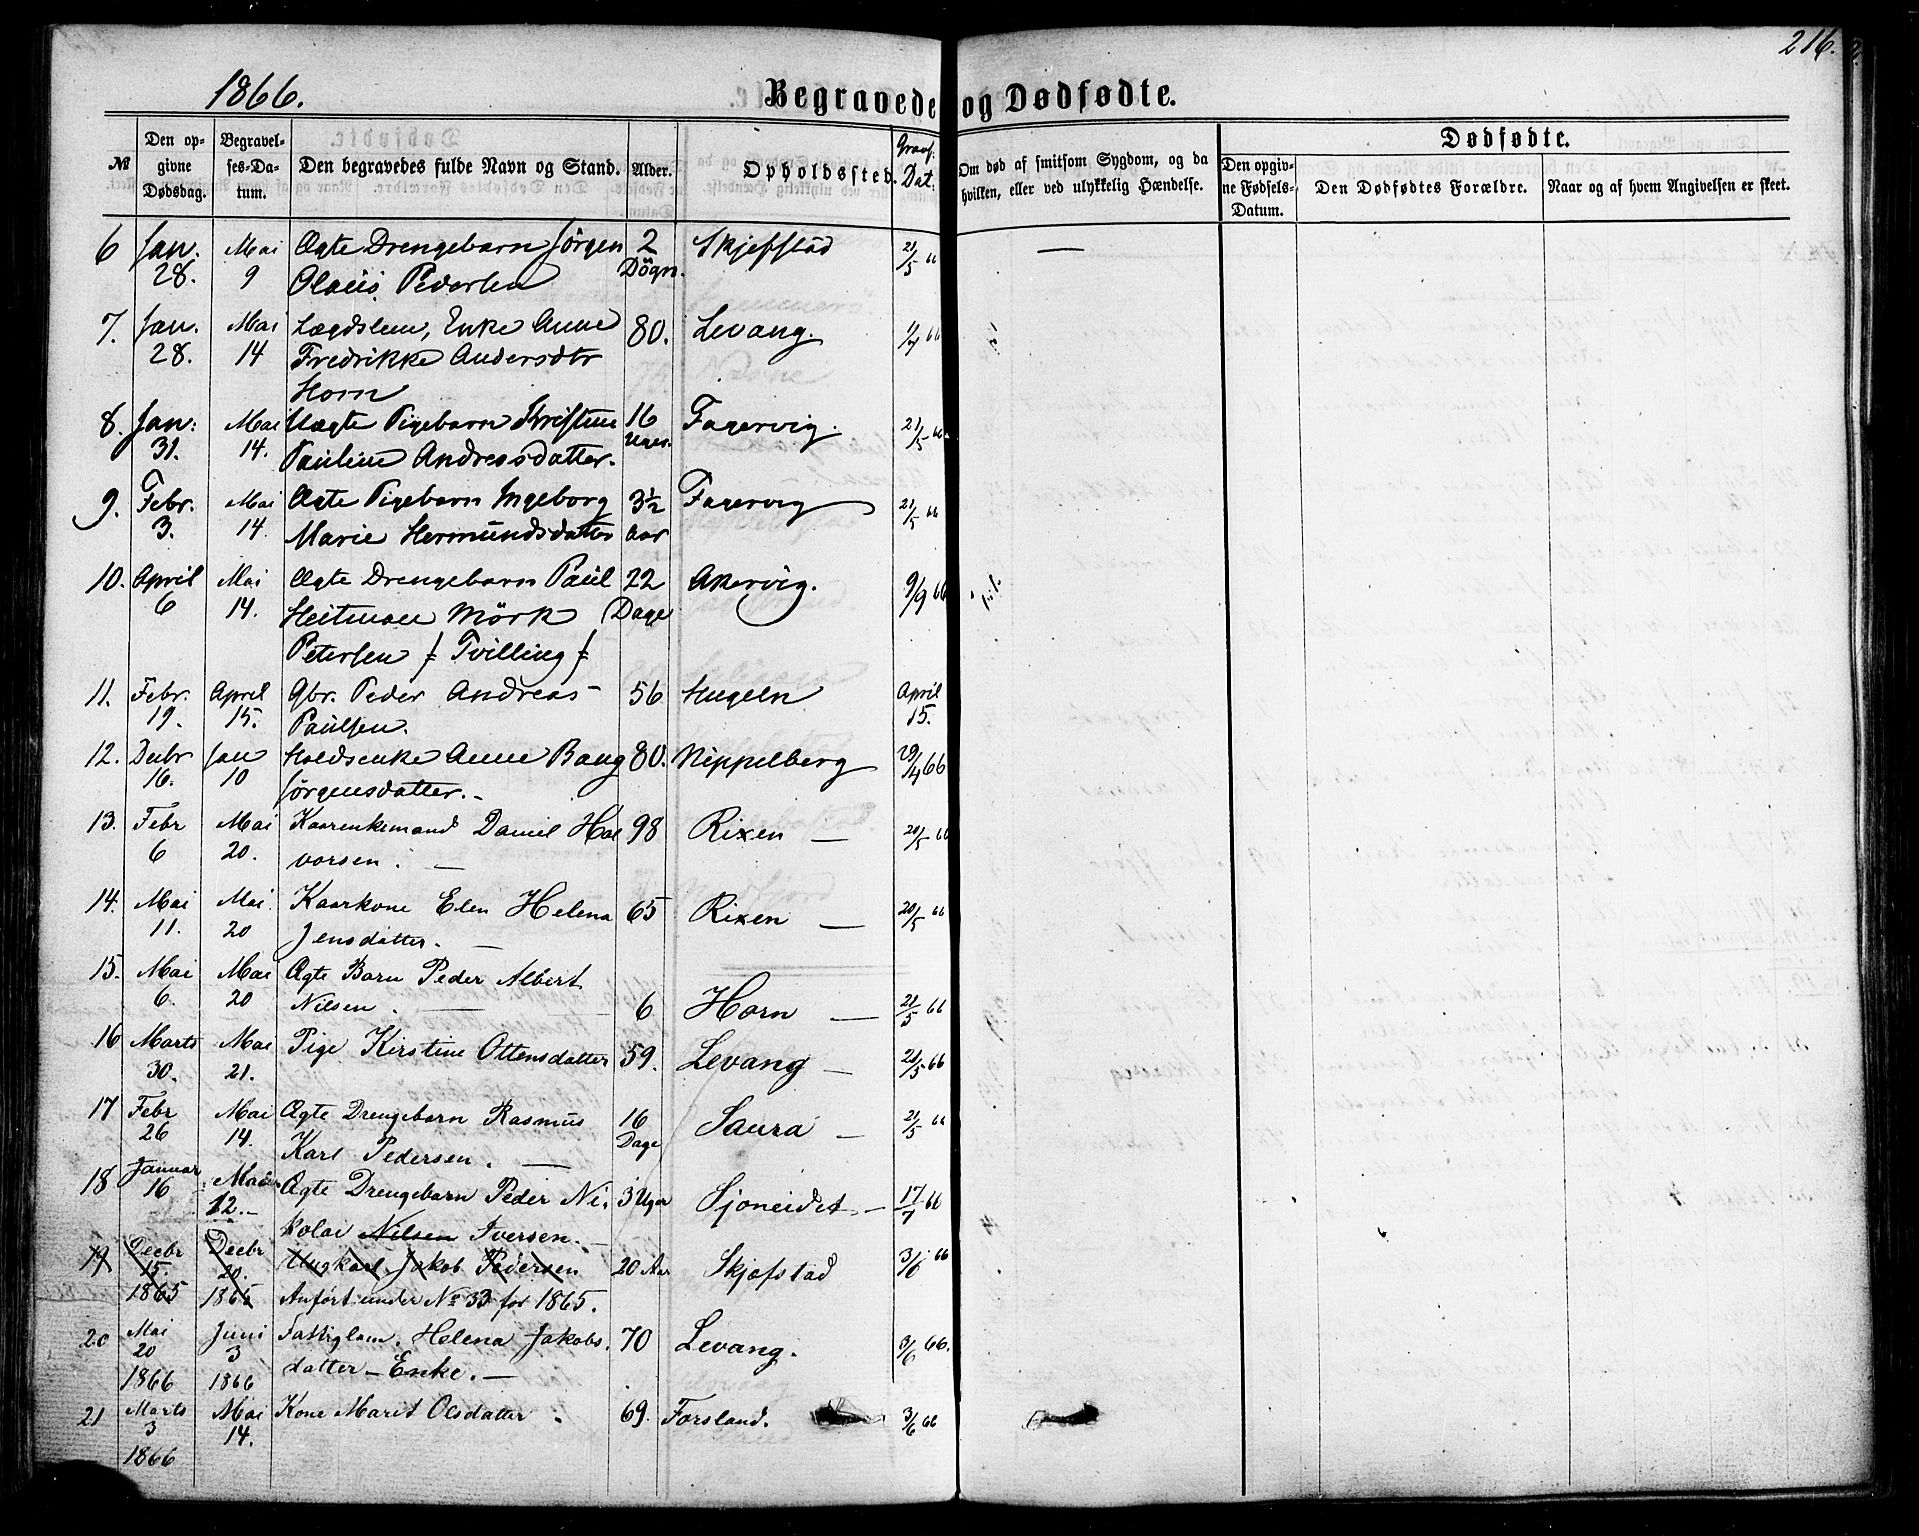 216.
1866.
Begravede og Dødfødte.
№
Den opgivne Dødsdag.
Begravelses-Datum.
Den begravedes fulde Navn og Stand.
Alder.
Opholdssted.
Dat:
Om død af smitsom Sygdom, og da hvilken, eller ved ulykkelig Hændelse.
Dødfødte.
Den opgivne Fødsels-Datum.
Den Dødfødtes Forældre.
Naar og af hvem Angivelsen er skeet.
6 Jan. Mai Ægte Drengebarn Jörgen 2 Skjefstad 21/5 66 —
28. 9 Olaus Pedersen Dögn.
7. Jan. Mai Lægdslem, Enke Anne 80. Levang. 66
28. 14 Fredrikke Andersdtr
Horn
8. Jan: Mai Uægte Pigebarn Kristine 16 Fagervig. 21/5 66
31. 14. Pauline Andreasdatter. Uger.
9. Febr. Mai Ægte Pigebarn Ingeborg 3½ Fagervig 21/5 66
3. 14. Marie Hermundsdatter Aar
10. April Mai Ægte Drengebarn Paul 22 Akervig. 9/9 66
6 14. Heitman Mörk Dage
Petersen /: Tvilling :/
11. Febr. April Gbr. Peder Andreas 56 Hugeln April
19. 15. Paulsen. 15.
12. Decbr Jan Holdsenke Anne Bang 80. Nippelberg 29/4 66
16. 10 Jörgensdatter.
13. Febr Mai Kaarenkemand Daniel Hal 98 Rixen — 20/5 66
6 20. vorsen. —
14. Mai Mai Kaarkone Elen Helena 65 Rixen — 20/5 66
11. 20 Jensdatter. —
15. Mai Mai Ægte Barn Peder Albert
6. 20 Nilsen. — 6 Horn — 21/5 66
16 Marts Mai Pige Kirstine Ottensdatter 59. Levang — 21/5 66
30. 21.
17 Febr Mai Ægte Drengebarn Rasmus 16 Saura — 21/5 66
26 14. Karl Pedersen. — Dage
18 Januar Mai Ægte Drengebarn Peder Ni- 3 Uger Sjoneidet — 17/7 66
16 12. kolai Nilsen Iversen. —
19 Decbr Decbr Ungkarl Jakob Pedersen 20 Aar Skjefstad 3/6 66
15. 20.
1865 1865 Anført under No 33 for 1865.
20 Mai Juni Fattiglem. Helena Jakobs. 70 Levang. 3/6 66.
20 3 datter — Enke. —
1866 1866
21 Marts Mai Kone Marit Olsdatter 69. Forsland. 3/6 66
3 14.
1866